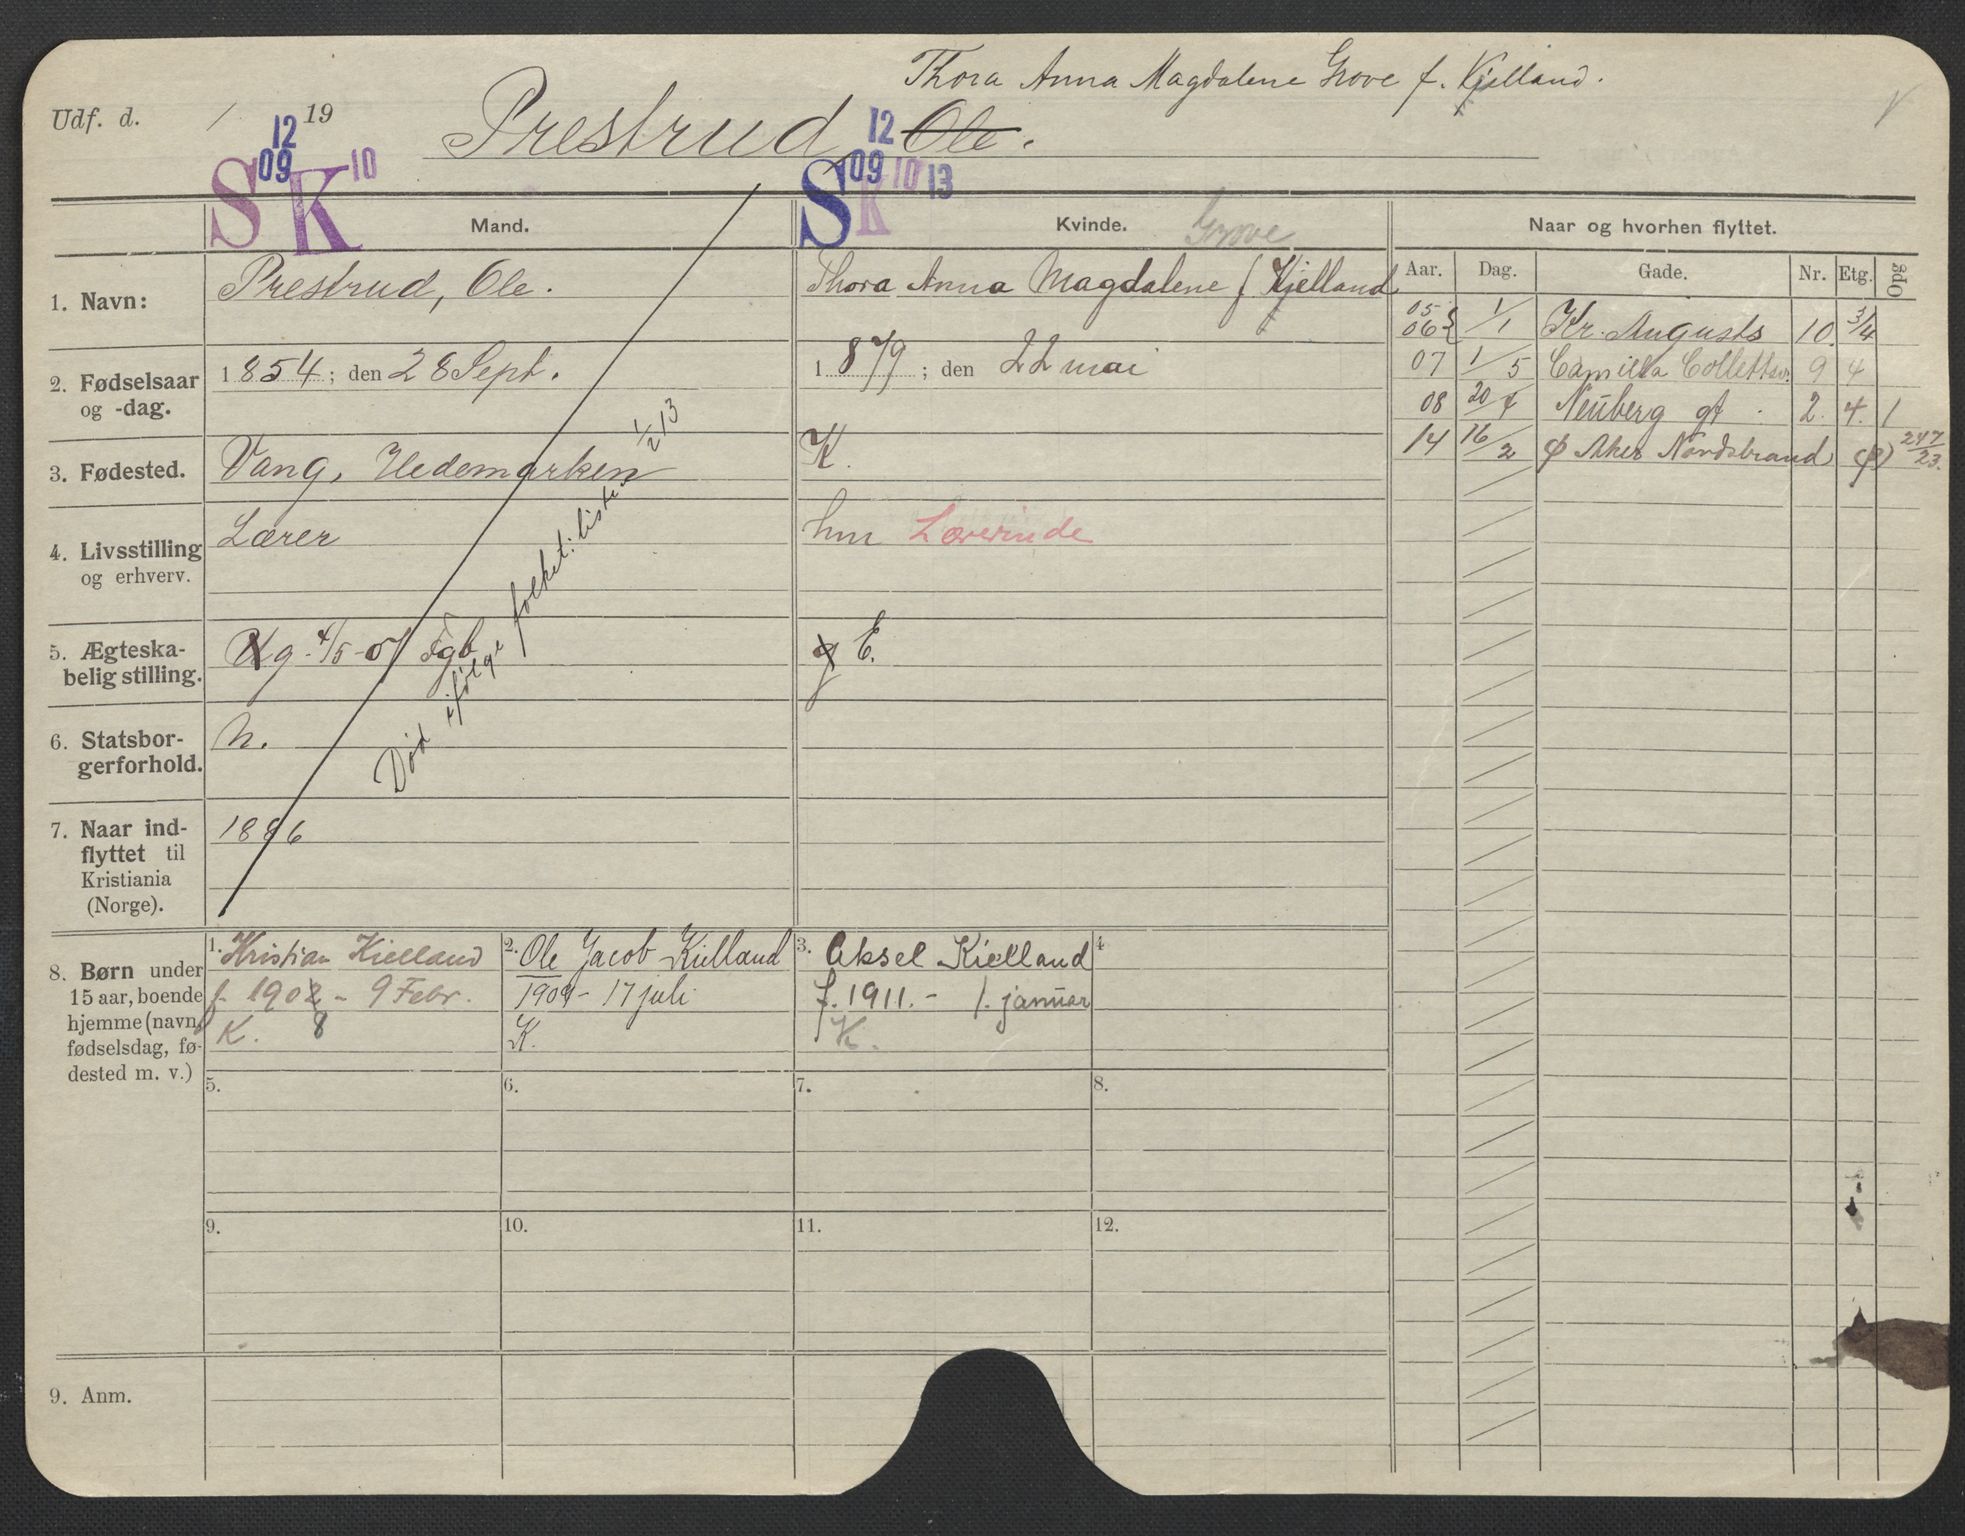 Thora Anna Magdalene Grove f. Kjelland.
Udf. d. / 19
Prestrud, Ole.
12 09 S K 10
12 09 S K 10 13
Mand.
Kvinde. Grove
Naar og hvorhen flyttet.
Aar. Dag. Gade. Nr. Etg. Opg
1. Navn:
Prestrud, Ole.
Thora Anna Magdalene f Kjelland
05
06 1/1 Kr. Augusts 10. 3/4
07 1/5 Camilla Collettsv. 9 4
08 20/4 Neuberg gt. 2. 4. 1
14 16/2 Ø Aker Nordstrand 247/23.
2. Fødselsaar
og -dag.
1854; den 28 Sept.
1879; den 22 mai
3. Fødested.
Vang, Hedemarken
K.
4. Livsstilling
og erhverv.
Lærer
hm Lærerinde
5. Ægteska-
belig stilling.
g. 4/5-07 Fgb
g E.
6. Statsbor-
gerforhold.
n.
Død ifølge folket:liste 1/2 13
7. Naar ind-
flyttet til
Kristiania
(Norge).
1886
8. Børn under
15 aar, boende
hjemme (navn,
fødselsdag, fø-
dested m. v.)
1. Kristian Kielland
f. 1902 - 9 Febr.
K. 8
2. Ole Jacob Kielland
1909 - 17 juli
K.
3. Aksel Kielland
f. 1911. - 1. januar
K.
4
5. 6. 7. 8.
9. 10. 11. 12.
9. Anm.